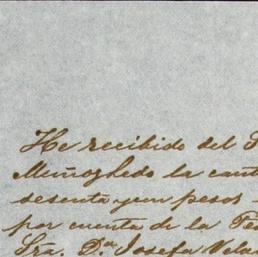 He recibido del
Muñozledo la cant
sesenta y un pesos
por cuenta de la
Sra. Dña Josefa Vela